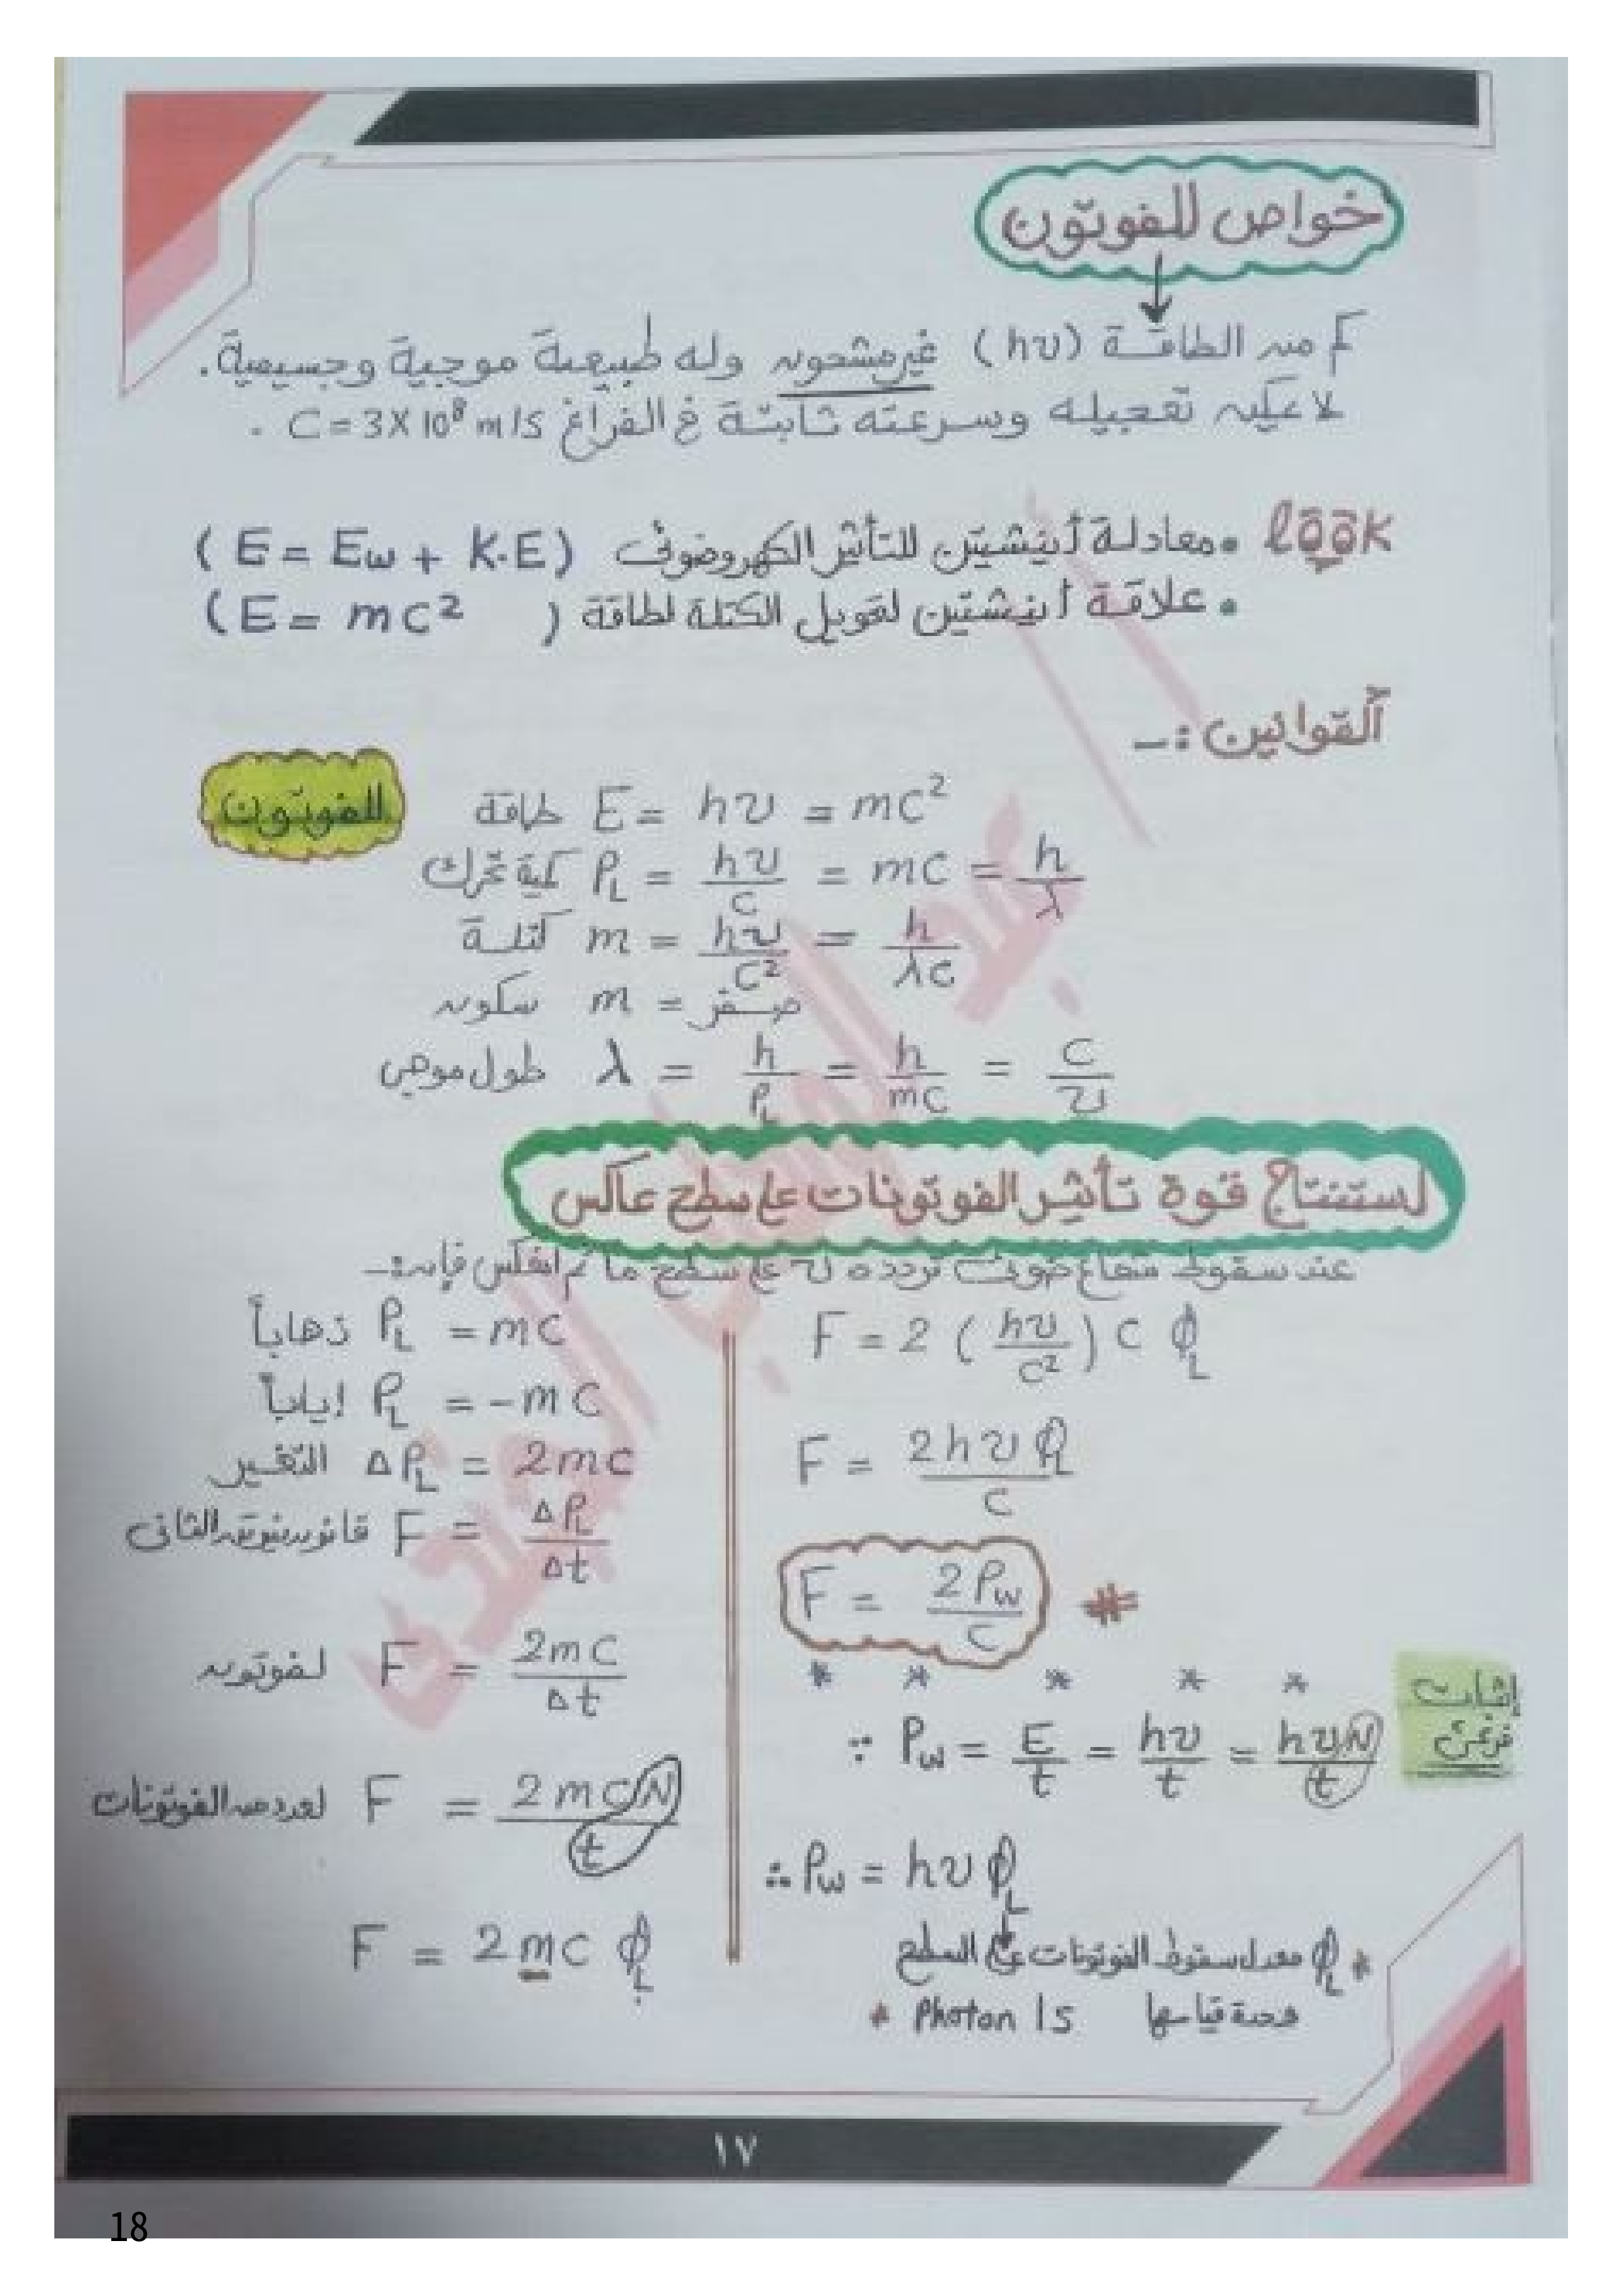 خواص للفوتون
F من الطاقة (hυ) غير مشحون وله طبيعة موجية وجسيمية.
لا يمكن تعجيله وسرعته ثابتة في الفراغ C = 3X10⁸ m/s .
look • معادلة أينشتين للتأثير الكهروضوئى (E = Ew + K.E)
• علاقة أينشتين لتحويل الكتلة لطاقة (E = mc²)
القوانين :-
للفوتون
طاقة E = hυ = mc²
كمية تحرك P_L = hυ/c = mc = h/λ
كتلة m = hυ/c² = h/λc
سكون m = صفر
طول موجى λ = h/P_L = h/mc = c/υ
لستنتاج قوة تأثير الفوتونات على سطح عاكس
عند سقوط شعاع ضوئى تردده υ على سطح ما ثم انعكس فإن :-
ذهاباً P_L = mc
إياباً P_L = -mc
التغير ΔP_L = 2mc
قانون نيوتن الثانى F = ΔP_L/Δt
لفوتون F = 2mc/Δt
لعدد من الفوتونات F = 2mcN/t
F = 2mc φ_L
F = 2 (hυ/c²) c φ_L
F = 2hυ φ_L/c
F = 2Pw/c #
* * * * *
إثبات
فرعى
∵ Pw = E/t = hυ/t = hυN/t
∴ Pw = hυ φ_L
* φ_L معدل سقوط الفوتونات على السطح
وحدة قياسها Photon / s *
١٧
18